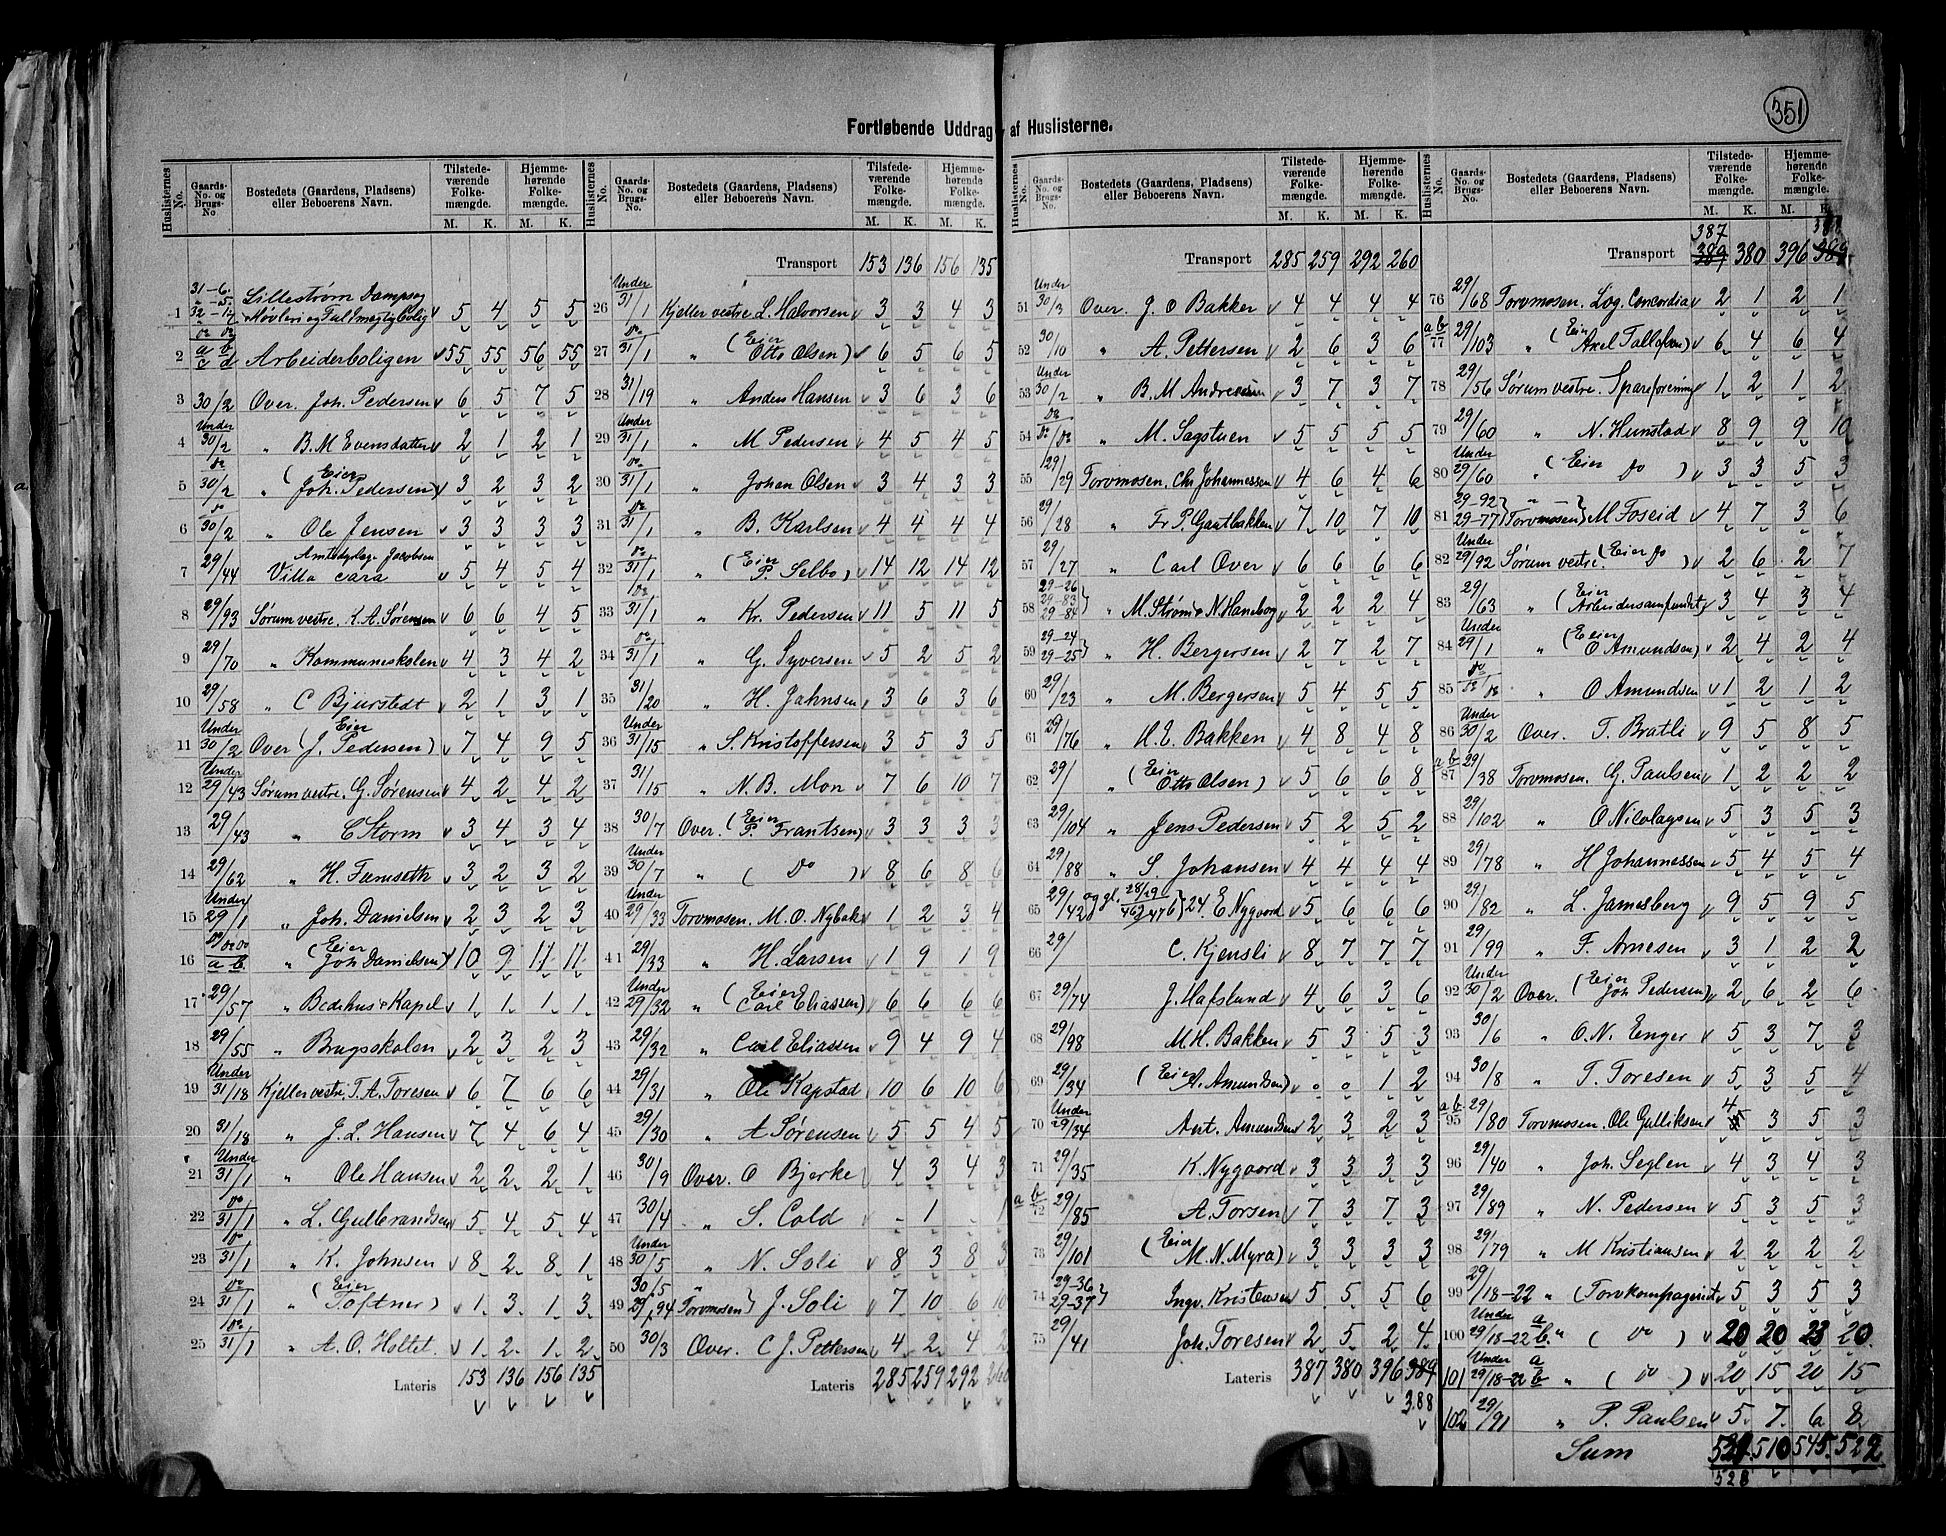 351
Fortløbende Uddrag af Huslisterne.
Huslisternes No. | Gaards-No. og Brugs-No | Bostedets (Gaardens, Pladsens) eller Beboerens Navn. | Tilstedeværende Folkemængde. M. K. | Hjemmehørende Folkemængde. M. K.
1 31-6. 32-17 Lillestrøm Dampsag Høvleri og Fuldmægtigbolig 5 4 5 5
2 a b c d Arbeiderboligen 55 55 56 55
3 30/2 Over. Joh. Pedersen 6 5 7 5
4 Under 30/2 " B. M. Evensdatter 2 1 2 1
5 do 30/2 " (Eier Joh. Pedersen) 3 2 3 2
6 do 30/2 " Ole Jensen 3 3 3 3
7 29/44 Villa cara Jacobsen 5 4 5 4
8 29/93 Sørum vestre. K. A. Sørensen 6 6 4 5
9 29/70 " Kommuneskolen 4 3 4 2
10 29/58 " C Bjurstedt 2 1 3 1
11 Under 30/2 Over (Eier J. Pedersen) 7 4 9 5
12 Under 29/43 Sørum vestre. G. Sørensen 4 2 4 2
13 29/43 " C Storm 3 4 3 4
14 29/62 " H. Furuseth 3 2 3 2
15 Under 29/1 " Joh. Danielsen 2 3 2 3
16 do do do a b. " (Eier Joh Danielsen) 10 9 11 11
17 29/57 " Bedehus & Kapel 1 1 1 1
18 29/55 " Brugsskolen 2 3 2 3
19 Under 31/18 Kjeller vestre, T. A. Toresen 6 7 6 6
20 31/18 " J. L. Hansen 7 4 6 4
21 Under 31/1 " Ole Hansen 2 2 2 1
22 do 31/1 " L. Gulbrandsen 5 4 5 4
23 do 31/1 " K. Johnsen 8 2 8 1
24 do 31/1 " (Eier Toftner) 1 3 1 3
25 do 31/1 " A. O. Holtet. 1 2 1 2
Lateris 153 136 156 135
Huslisternes No. | Gaards-No. og Brugs-No. | Bostedets (Gaardens, Pladsens) eller Beboerens Navn. | Tilstedeværende Folkemængde. M. K. | Hjemmehørende Folkemængde. M. K.
Transport 153 136 156 135
26 Under 31/1 Kjeller vestre L. Halvorsen 3 3 4 3
27 do 31/1 " (Eier Otto Olsen) 6 5 6 5
28 31/19 " Anders Hansen 3 6 3 6
29 Under 31/1 " M Pedersen 4 5 4 5
30 do 31/1 " Johan Olsen 3 4 3 3
31 do 31/1 " B. Karlsen 4 4 4 4
32 do 31/1 " (Eier P. Selbo) 14 12 14 12
33 do 31/1 " Kr. Pedersen 11 5 11 5
34 do 31/1 " G. Syversen 5 2 5 2
35 31/20 " H. Jahnsen 3 6 3 6
36 Under 31/15 " S. Kristoffersen 3 5 3 5
37 31/15 " N. B. Mon 7 6 10 7
38 30/7 Over. (Eier P. Frantsen) 3 3 3 3
39 Under 30/7 " ( Do ) 8 6 8 6
40 Under 29/33 Torvmosen. M. O. Nybak 1 2 3 4
41 29/33 " H. Larsen 1 9 1 9
42 Under 29/32 " (Eier Carl Eliassen) 6 6 6 6
43 29/32 " Carl Eliassen 9 4 9 4
44 29/31 " Ole Kapstad 10 6 10 6
45 29/30 " A Sørensen 5 5 4 5
46 30/9 Over. O Bjerke 4 3 4 3
47 30/4 " S. Cold - 1 - 1
48 Under 30/5 " N. Soli 8 3 8 3
49 30/5 29/94 " Torvmosen } J. Soli 7 10 6 10
50 30/3 Over. C J. Pettersen 4 2 4 2
Lateris 285 259 292 260
Huslisternes No. | Gaards-No. og Brugs-No. | Bostedets (Gaardens, Pladsens) eller Beboerens Navn. | Tilstedeværende Folkemængde. M. K. | Hjemmehørende Folkemængde. M. K.
Transport 285 259 292 260
51 Under 30/3 Over. J. O Bakker 4 4 4 4
52 30/10 " A. Pettersen 2 6 3 6
53 Under 30/2 " B. M Andreassen 3 7 3 7
54 do do/do " M. Sagstuen 5 5 5 5
55 29/29 Torvmosen. Chr Johannessen 4 6 4 6
56 29/28 " Fr P. Gautbakken 7 10 7 10
57 29/27 " Carl Over 6 6 6 6
58 29-26 29-83 29-84 } " M. Strøm & N. Haneborg 2 2 2 4
59 29-24 29-25 } " H. Bergersen 2 7 2 7
60 29/23 " M. Bergersen 5 4 5 5
61 29/76 " H. E. Bakken 4 8 4 8
62 29/ " (Eier Otto Olsen) 5 6 6 8
63 29/104 " Jens Pedersen 5 2 5 2
64 29/88 " S. Johansen 4 4 4 4
65 29/42 og gl. 28/29 463 476 } 24 E Nygaard 5 6 6 6
66 29/ C. Kjensli 8 7 7 7
67 29/74 J. Hafslund 4 6 3 6
68 29/98 M. H. Bakken 5 3 5 3
69 29/34 (Eier A. Amundsen) 0 0 1 2
70 Under 29/34 Ant. Amundsen 2 3 2 3
71 29/35 K. Nygaard 3 3 3 3
72 a b 29/85 A. Torsen 7 3 7 3
73 29/101 (Eier M. N. Myra) 3 3 3 3
74 29-36 29-37 } Ingv. Kristensen 5 5 5 6
75 29/41 Joh. Toresen 2 5 2 4
Lateris 387 380 396 389
388
Huslisternes No. | Gaards-No. og Brugs-No. | Bostedets (Gaardens, Pladsens) eller Beboerens Navn. | Tilstedeværende Folkemængde. M. K. | Hjemmehørende Folkemængde. M. K.
387 388
Transport 389 380 396 389
76 29/68 Torvmosen. Log. Concordia 2 1 2 1
77 a b 29/103 " (Eier Axel Tallefsen) 6 4 6 4
78 29/56 Sørum vestre. Spareforening 1 2 1 2
79 29/60 " N. Hunstad 8 9 9 10
80 Under 29/60 " (Eier Do ) 3 3 5 3
81 29-92 29-77 } " Torvmosen } M Foseid 4 7 3 6
82 Under 29/92 Sørum vestre. (Eier Do ) 2 6 2 7
83 29/63 " (Eier Arbeidersamfundet) 3 4 3 4
84 Under 29/1 " (Eier O Amundsen) 2 4 2 4
85 do do/do " O Amundsen 1 2 1 2
86 Under 30/2 Over. T. Bratli 9 5 8 5
87 a b 29/38 Torvmosen. G. Paulsen 1 2 2 2
88 29/102 " O Nicolaysen 5 3 5 3
89 29/78 " H Johannessen 5 4 5 4
90 29/82 " L. Jamesberg 9 5 9 5
91 29/99 " F. Arnesen 3 1 2 2
92 Under 30/2 Over. (Eier Joh Pedersen) 2 6 2 6
93 30/6 " O. N. Enger 5 3 7 3
94 30/8 " T. Toresen 5 3 5 4
95 a b 29/80 Torvmosen. Ole Gulliksen 4 5 3 5 3
96 29/40 " Joh. Seglen 4 3 4 3
97 29/89 " N. Pedersen 5 3 5 3
98 29/79 " M Kristiansen 2 2 2 2
99 29/18-22 " (Torvkompagniet 5 3 5 3
100 Under 29/18-22 a b " ( Do ) 20 20 23 20
101 Under 29/18-22 a b " ( Do ) 20 15 20 15
102 29/91 " P. Paulsen 5 7 6 8
Sum 510 545 522
528